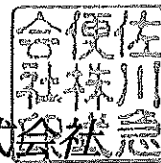 佐川急
便株式
会社印
式会社